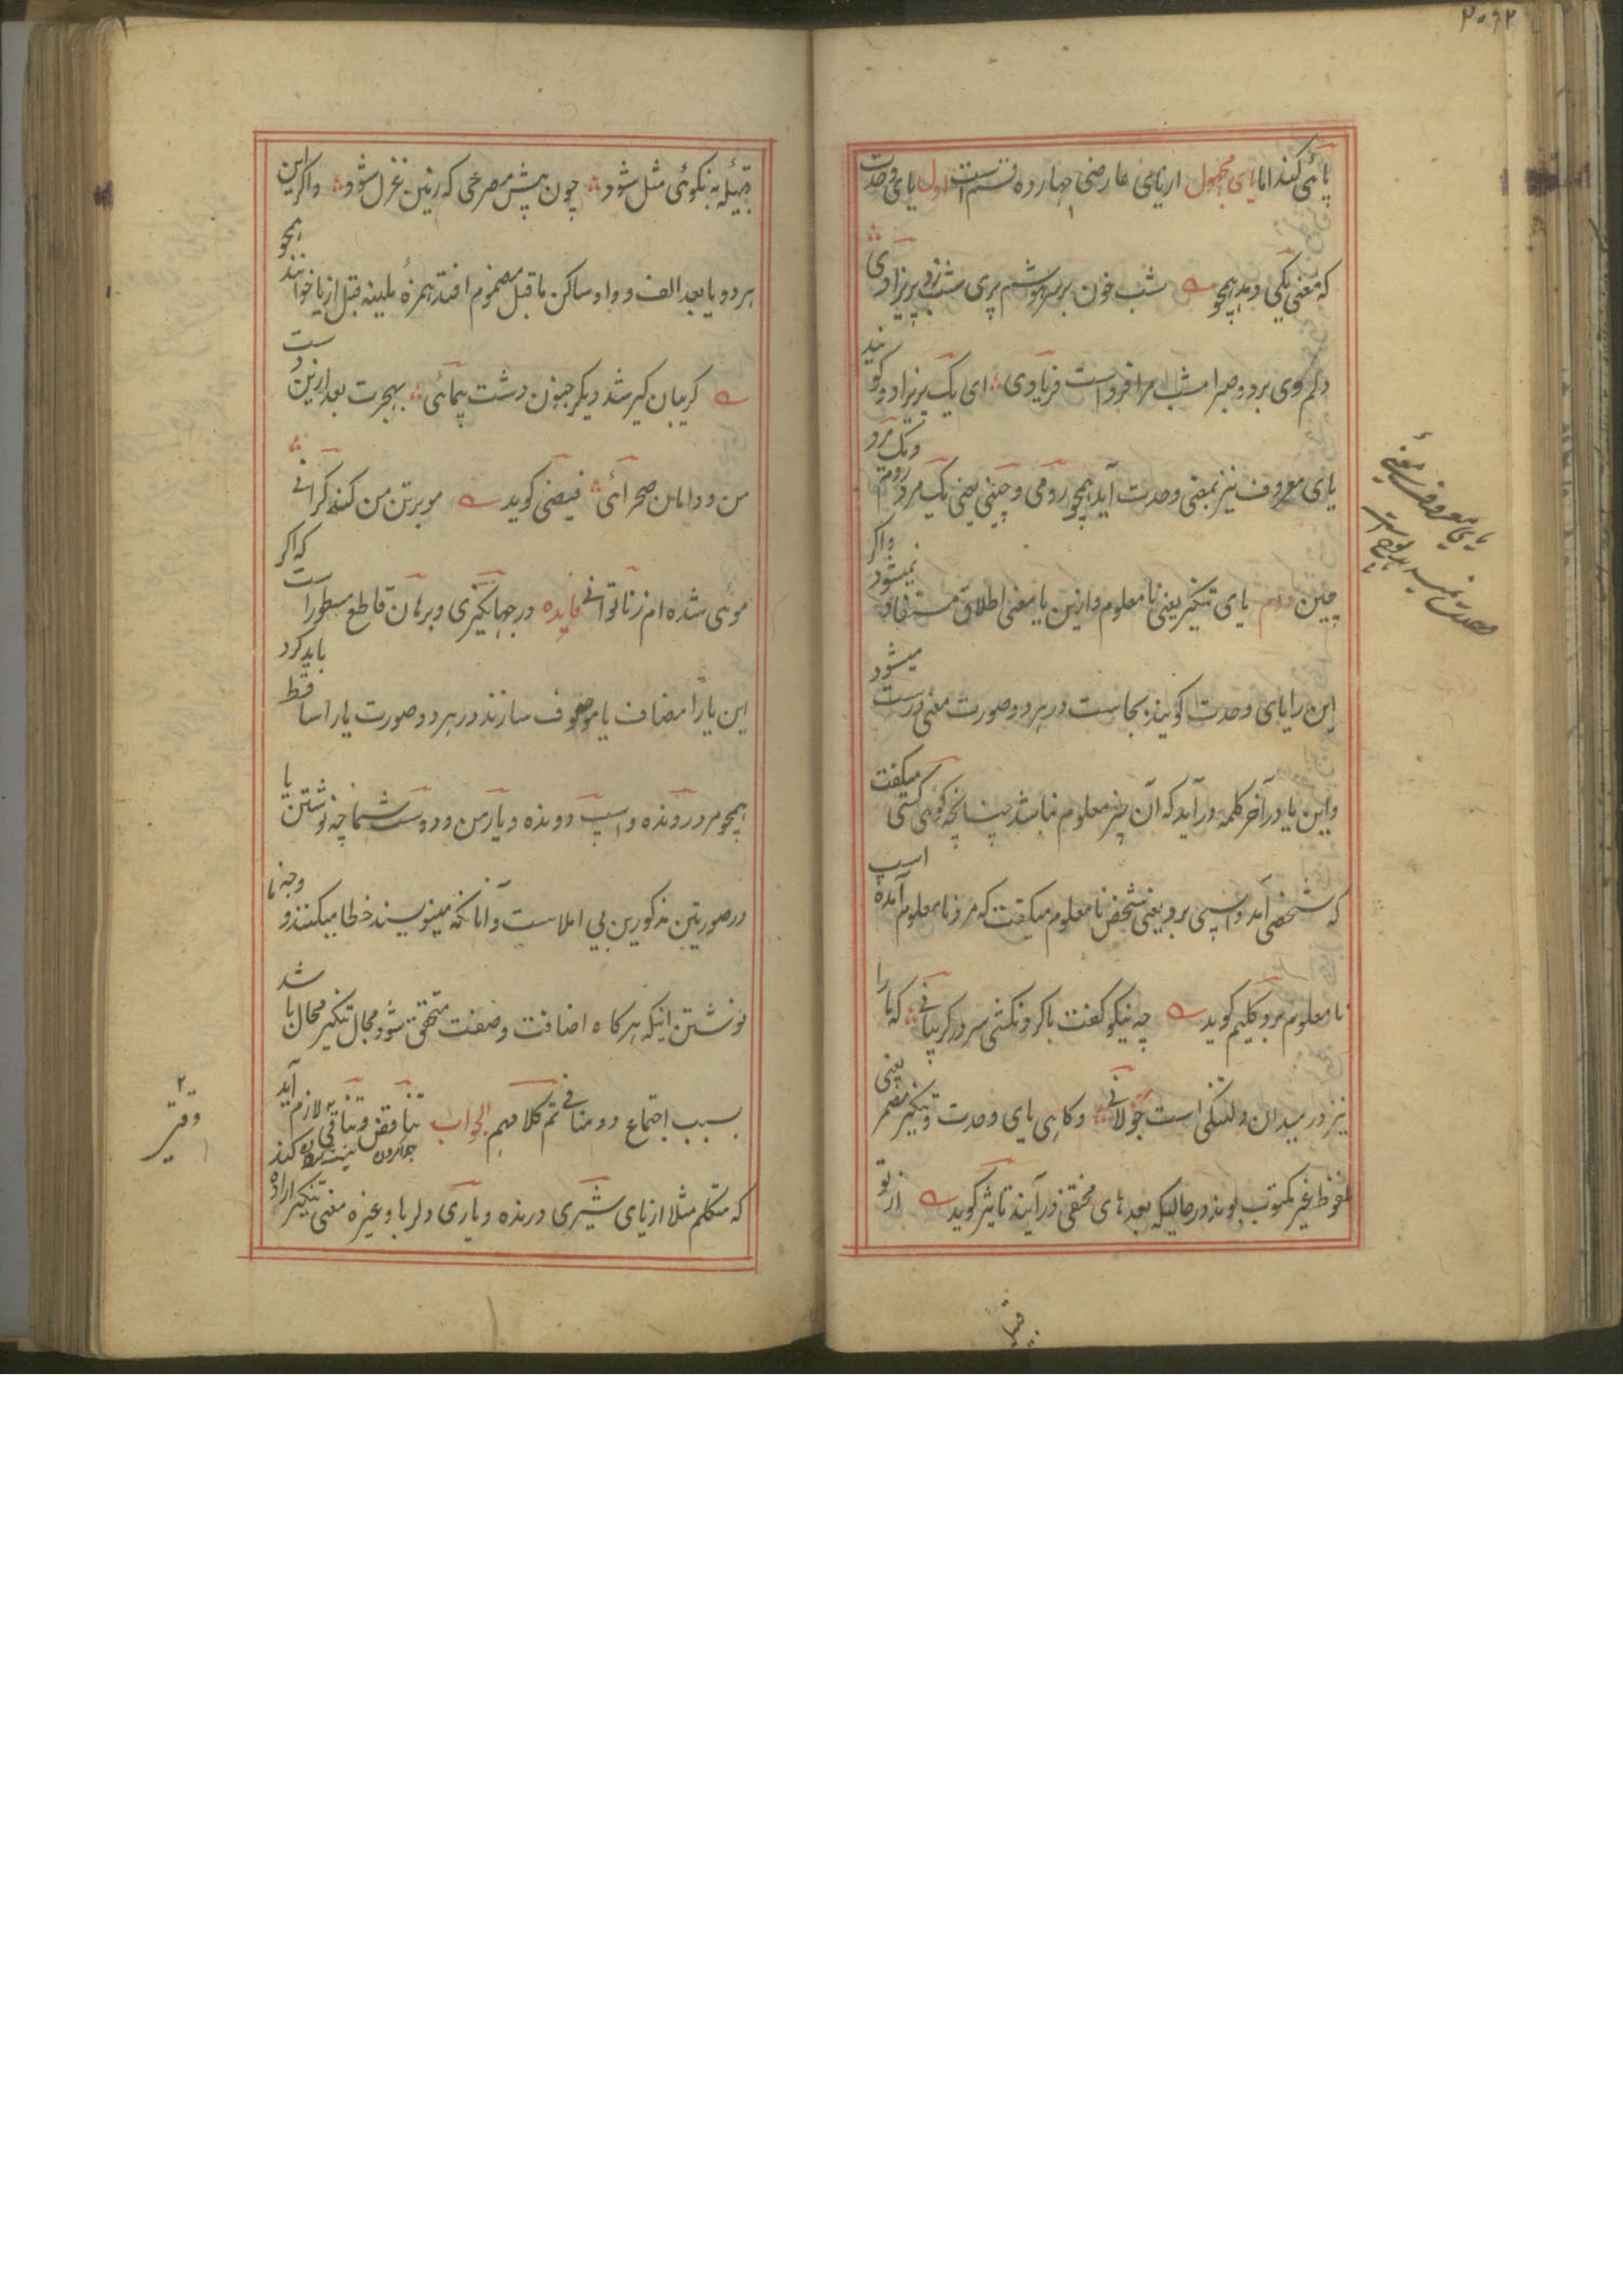 پائی کند اما یای مجهول از یای عارضی چهارده قسم است اول یای وحدت
که معنی یکی دهد همچو شب خون بر سر هوشم پری شب زد پریزادی
دلم وی برد و صبر امشب مرا فرد است فریادی ای یک پریزاد و گویند
یای معروف نیز بمعنی وحدت آید همچو رومی و چینی یعنی یک مرد روم و یک مرد
چین دوم یای تنکیر یعنی نامعلوم و ازین یا معنی اطلاق مستفاد نمیشود و اگر
این را یای وحدت گویند بجاست در هر دو صورت معنی درست میشود
و این یا در آخر کلمه در آید که آن چیز معلوم نباشد چنانچه گوئی کسی میگفت
که شخصی آمد و اسپی برد یعنی شخص نامعلوم میگفت که مرد نامعلوم آمده اسپ
نامعلوم برد کلیم گوید چه نیکو گفت با گردنکشی سر در گریبانی که پا را
نیز در میدان دلتنگی است جولانی و گاهی یای وحدت و تنکیر مضمر یعنی
ملفوظ غیر مکتوب بوند در حالیکه بعد های مختفی در آیند تاثیر گوید از تو
قبیله به نکوئی مثل شود چون پیش مصرعی که زمین غزل شود و اگر این
هر دو یا بعد الف و واو ساکن ماقبل مضموم افتد همزهٔ ملینه قبل از یا خوانند همچو
گریبان گیر شد دیگر جنون دشت پیمائی بهجرت بعد ازین دست
من و دامان صحرائی فیضی گوید مو بر تن من کند گرانی
موئی شده ام ز ناتوانی فایده در جهانگیری و برهان قاطع مسطور است که اگر
این یا را مضاف یا موصوف سازند در هر دو صورت یا را ساقط باید کرد
همچو مرد رونده و اسپ دونده و یار من و دوست شما چه نوشتن یا
در صورتین مذکورین بی املاست و آنانکه مینویسند خطا میکنند و وجه نا
نوشتن اینکه هرگاه اضافت و صفت متحقق شود مجال تنکیر محال باشد
بسبب اجتماع دو منافی تم کلامهم الجواب تناقض و تنافی لازم آید
که متکلم مثلا از یای شیری درنده و یاری دلربا و غیره معنی تنکیر اراده کند